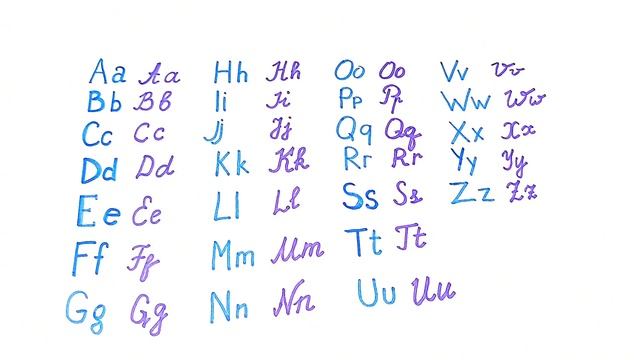 Aa Aa
Bb Bb
Cc Cc
Dd Dd
Ee Ee
Ff Ff
Gg Gg
Hh Hh
Ii Ii
Jj Jj
Kk Kk
Ll Ll
Mm Mm
Nn Nn
Oo Oo
Pp Pp
Qq Qq
Rr Rr
Ss Ss
Tt Tt
Uu Uu
Vv Vv
Ww Ww
Xx Xx
Yy Yy
Zz Zz